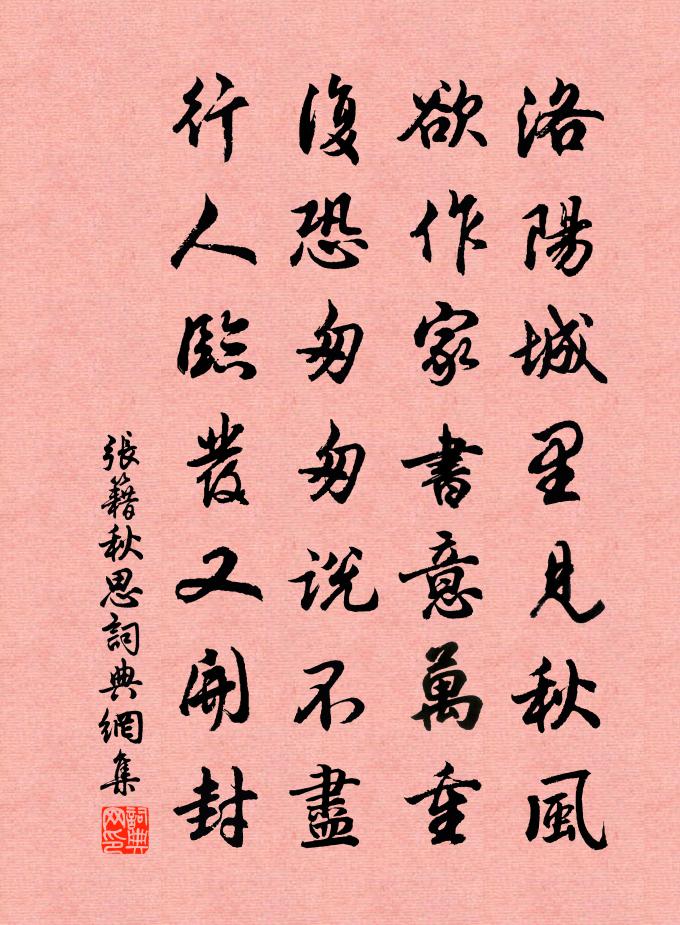 洛陽城里見秋風
欲作家書意萬重
復恐匆匆説不盡
行人臨發又開封
張籍秋思詞典網集
詞典網印